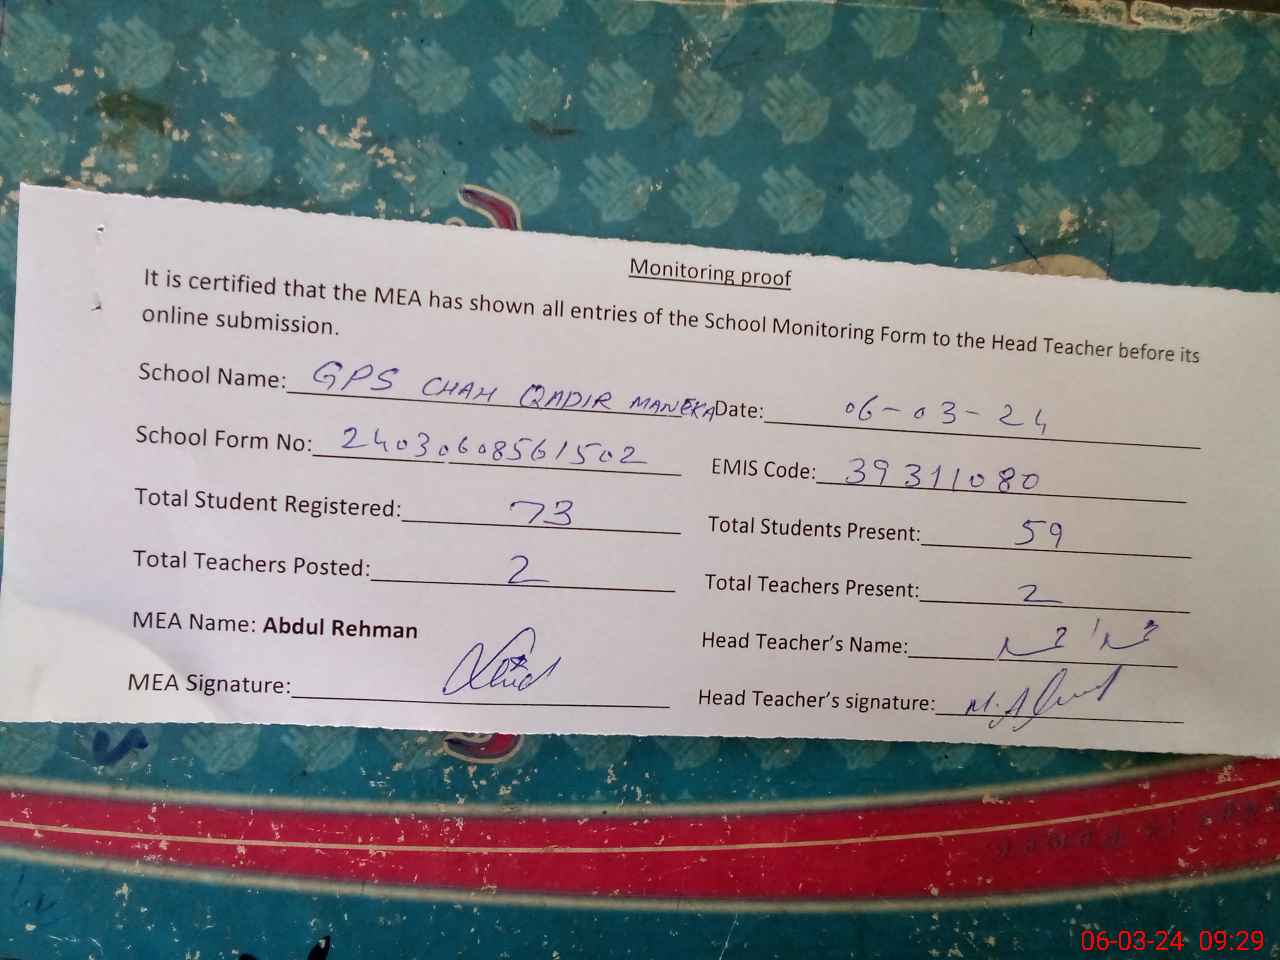 Monitoring proof
It is certified that the MEA has shown all entries of the School Monitoring Form to the Head Teacher before its
online submission.
School Name: GPS CHAH QADIR MANEKA Date: 06-03-24
School Form No: 24030608561502 EMIS Code: 39311080
Total Student Registered: 73 Total Students Present: 59
Total Teachers Posted: 2 Total Teachers Present: 2
MEA Name: Abdul Rehman Head Teacher's Name:
MEA Signature: Head Teacher's signature:
06-03-24 09:29